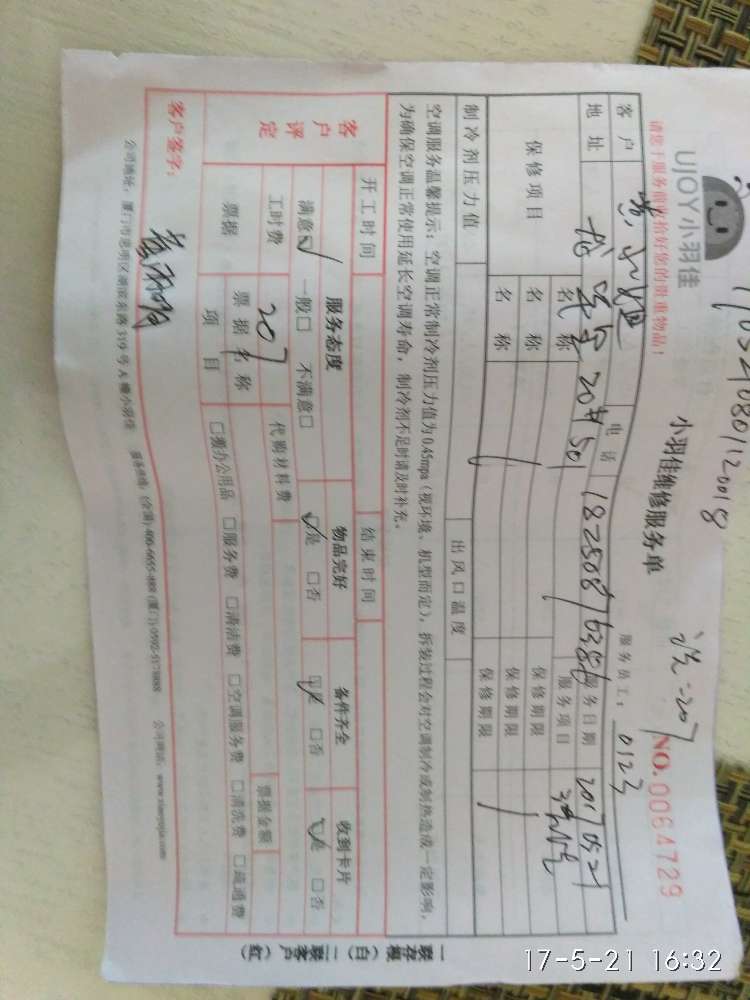 1705210801120018
UJOY小羽佳
小羽佳维修服务单
NO.0064729
请您于服务前收拾好您的贵重物品！
服务员工：
客户
电话
18250876386
服务日期
2017 05 21
地址
20# 501
服务项目
保修项目
名称
保修期限
名称
保修期限
名称
保修期限
制冷剂压力值
出风口温度
空调服务温馨提示：空调正常制冷剂压力值为0.45mpa（视环境、机型而定），拆装过程会对空调制冷或制热造成一定影响，
为确保空调正常使用延长空调寿命，制冷剂不足时请及时补充。
开工时间
结束时间
客户评定
服务态度
物品完好
备件齐全
收到卡片
满意☑ 一般□ 不满意□
☑是 □否
☑是 □否
☑是 □否
工时费
207
代购材料费
票据
票据名称
票据金额
项目
□搬办公用品 □服务费 □清洁费 □空调服务费 □清洗费 □疏通费
客户签字：
公司地址：厦门市思明区湖滨东路319号A幢小羽佳 服务热线：(全国) 400-6655-888 (厦门) 0592-5178888 公司网址：www.xiaoyujia.com
一联存根（白）二联客户（红）
17-5-21 16:32